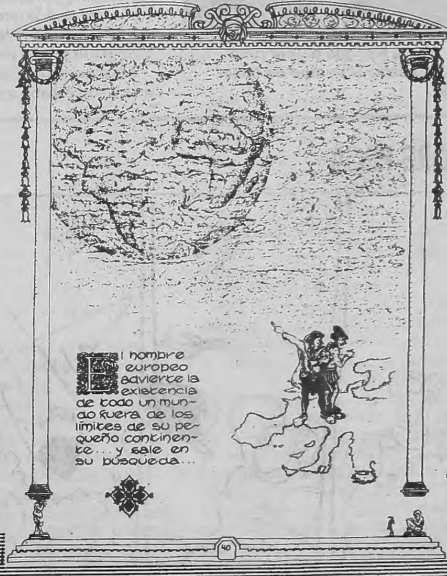 El hombre
europeo
advierte la
existencia
de todo un mun-
do fuera de los
límites de su pe-
queño continen-
te... y sale en
su búsqueda...
40